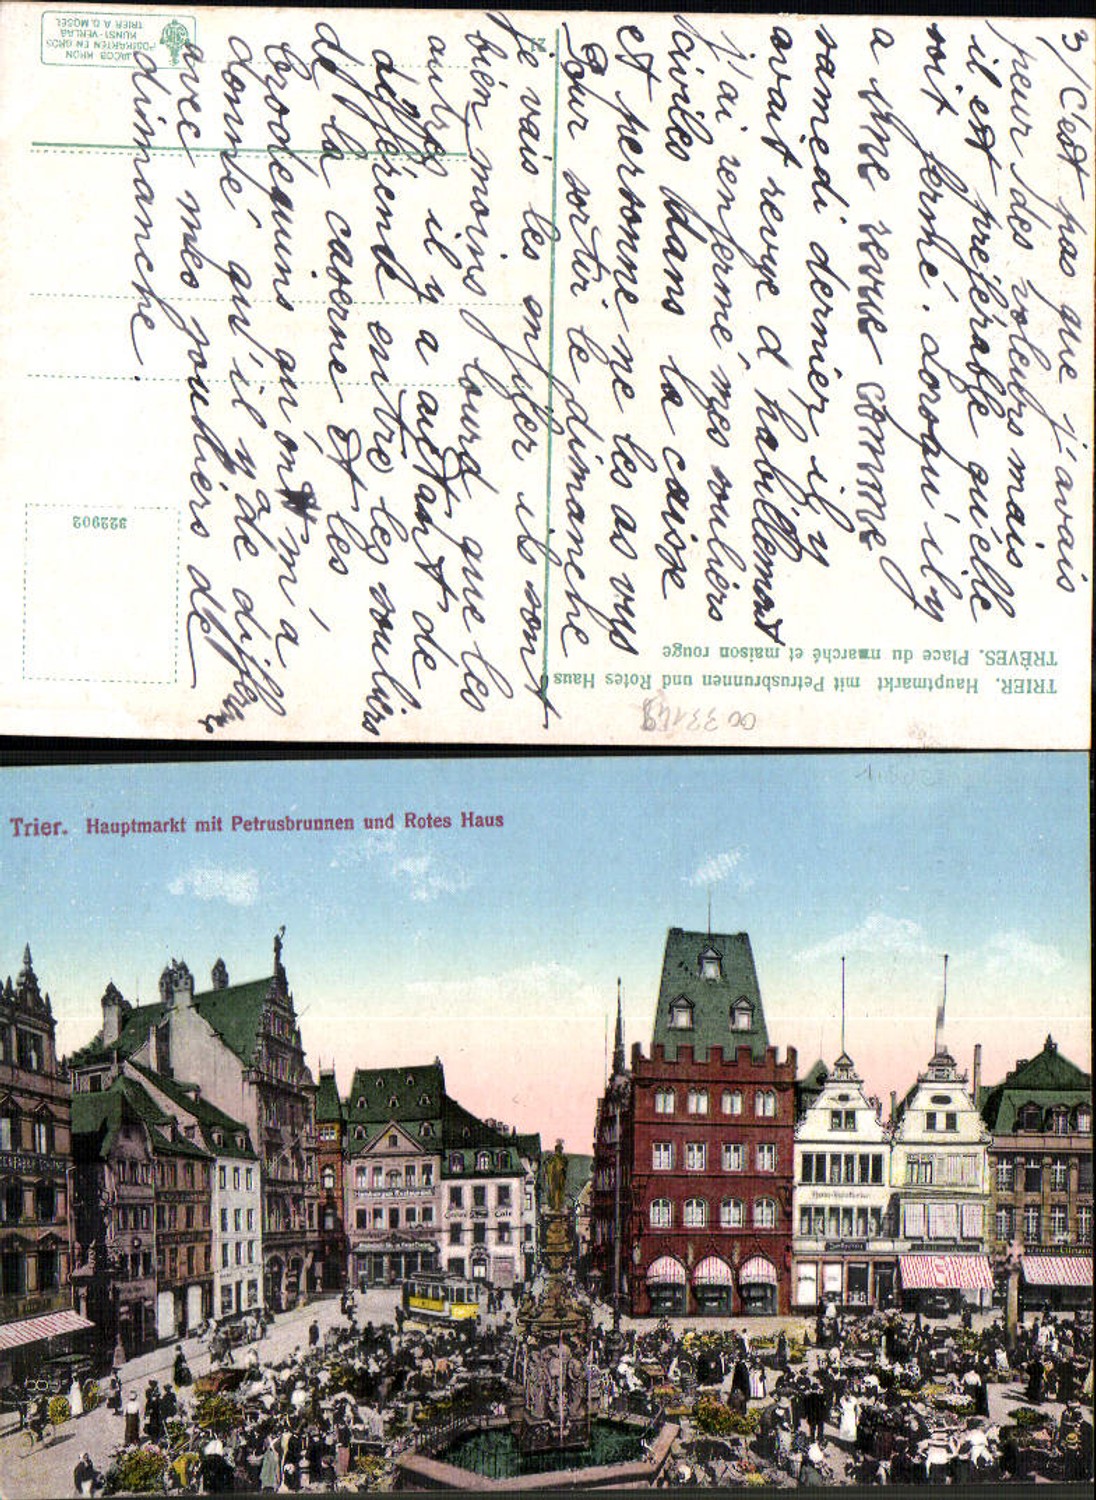 3/ C'est pas que j'avais
peur des voleurs mais
il est préférable qu'elle
soit fermé. Lorsqu'il y
a une revue comme
samedi dernier il y
avait revue d'habillement
j'ai renfermé mes souliers
civiles dans la caisse
et personne ne les as vus
Pour sortir le dimanche
je vais les enfiler ils sont
bien moins lourd que les
autres il y a autant de
différence entre les souliers
de la caserne et les
brodequins qu'on m'a
donné qu'il y a de différence
avec mes souliers de
dimanche.
TRIER. Hauptmarkt mit Petrusbrunnen und Rotes Haus
TRÈVES. Place du marché et maison rouge
322902
JACOB KRON
POSTKARTEN EN GROS
KUNST-VERLAG
TRIER A.D. MOSEL
Trier. Hauptmarkt mit Petrusbrunnen und Rotes Haus